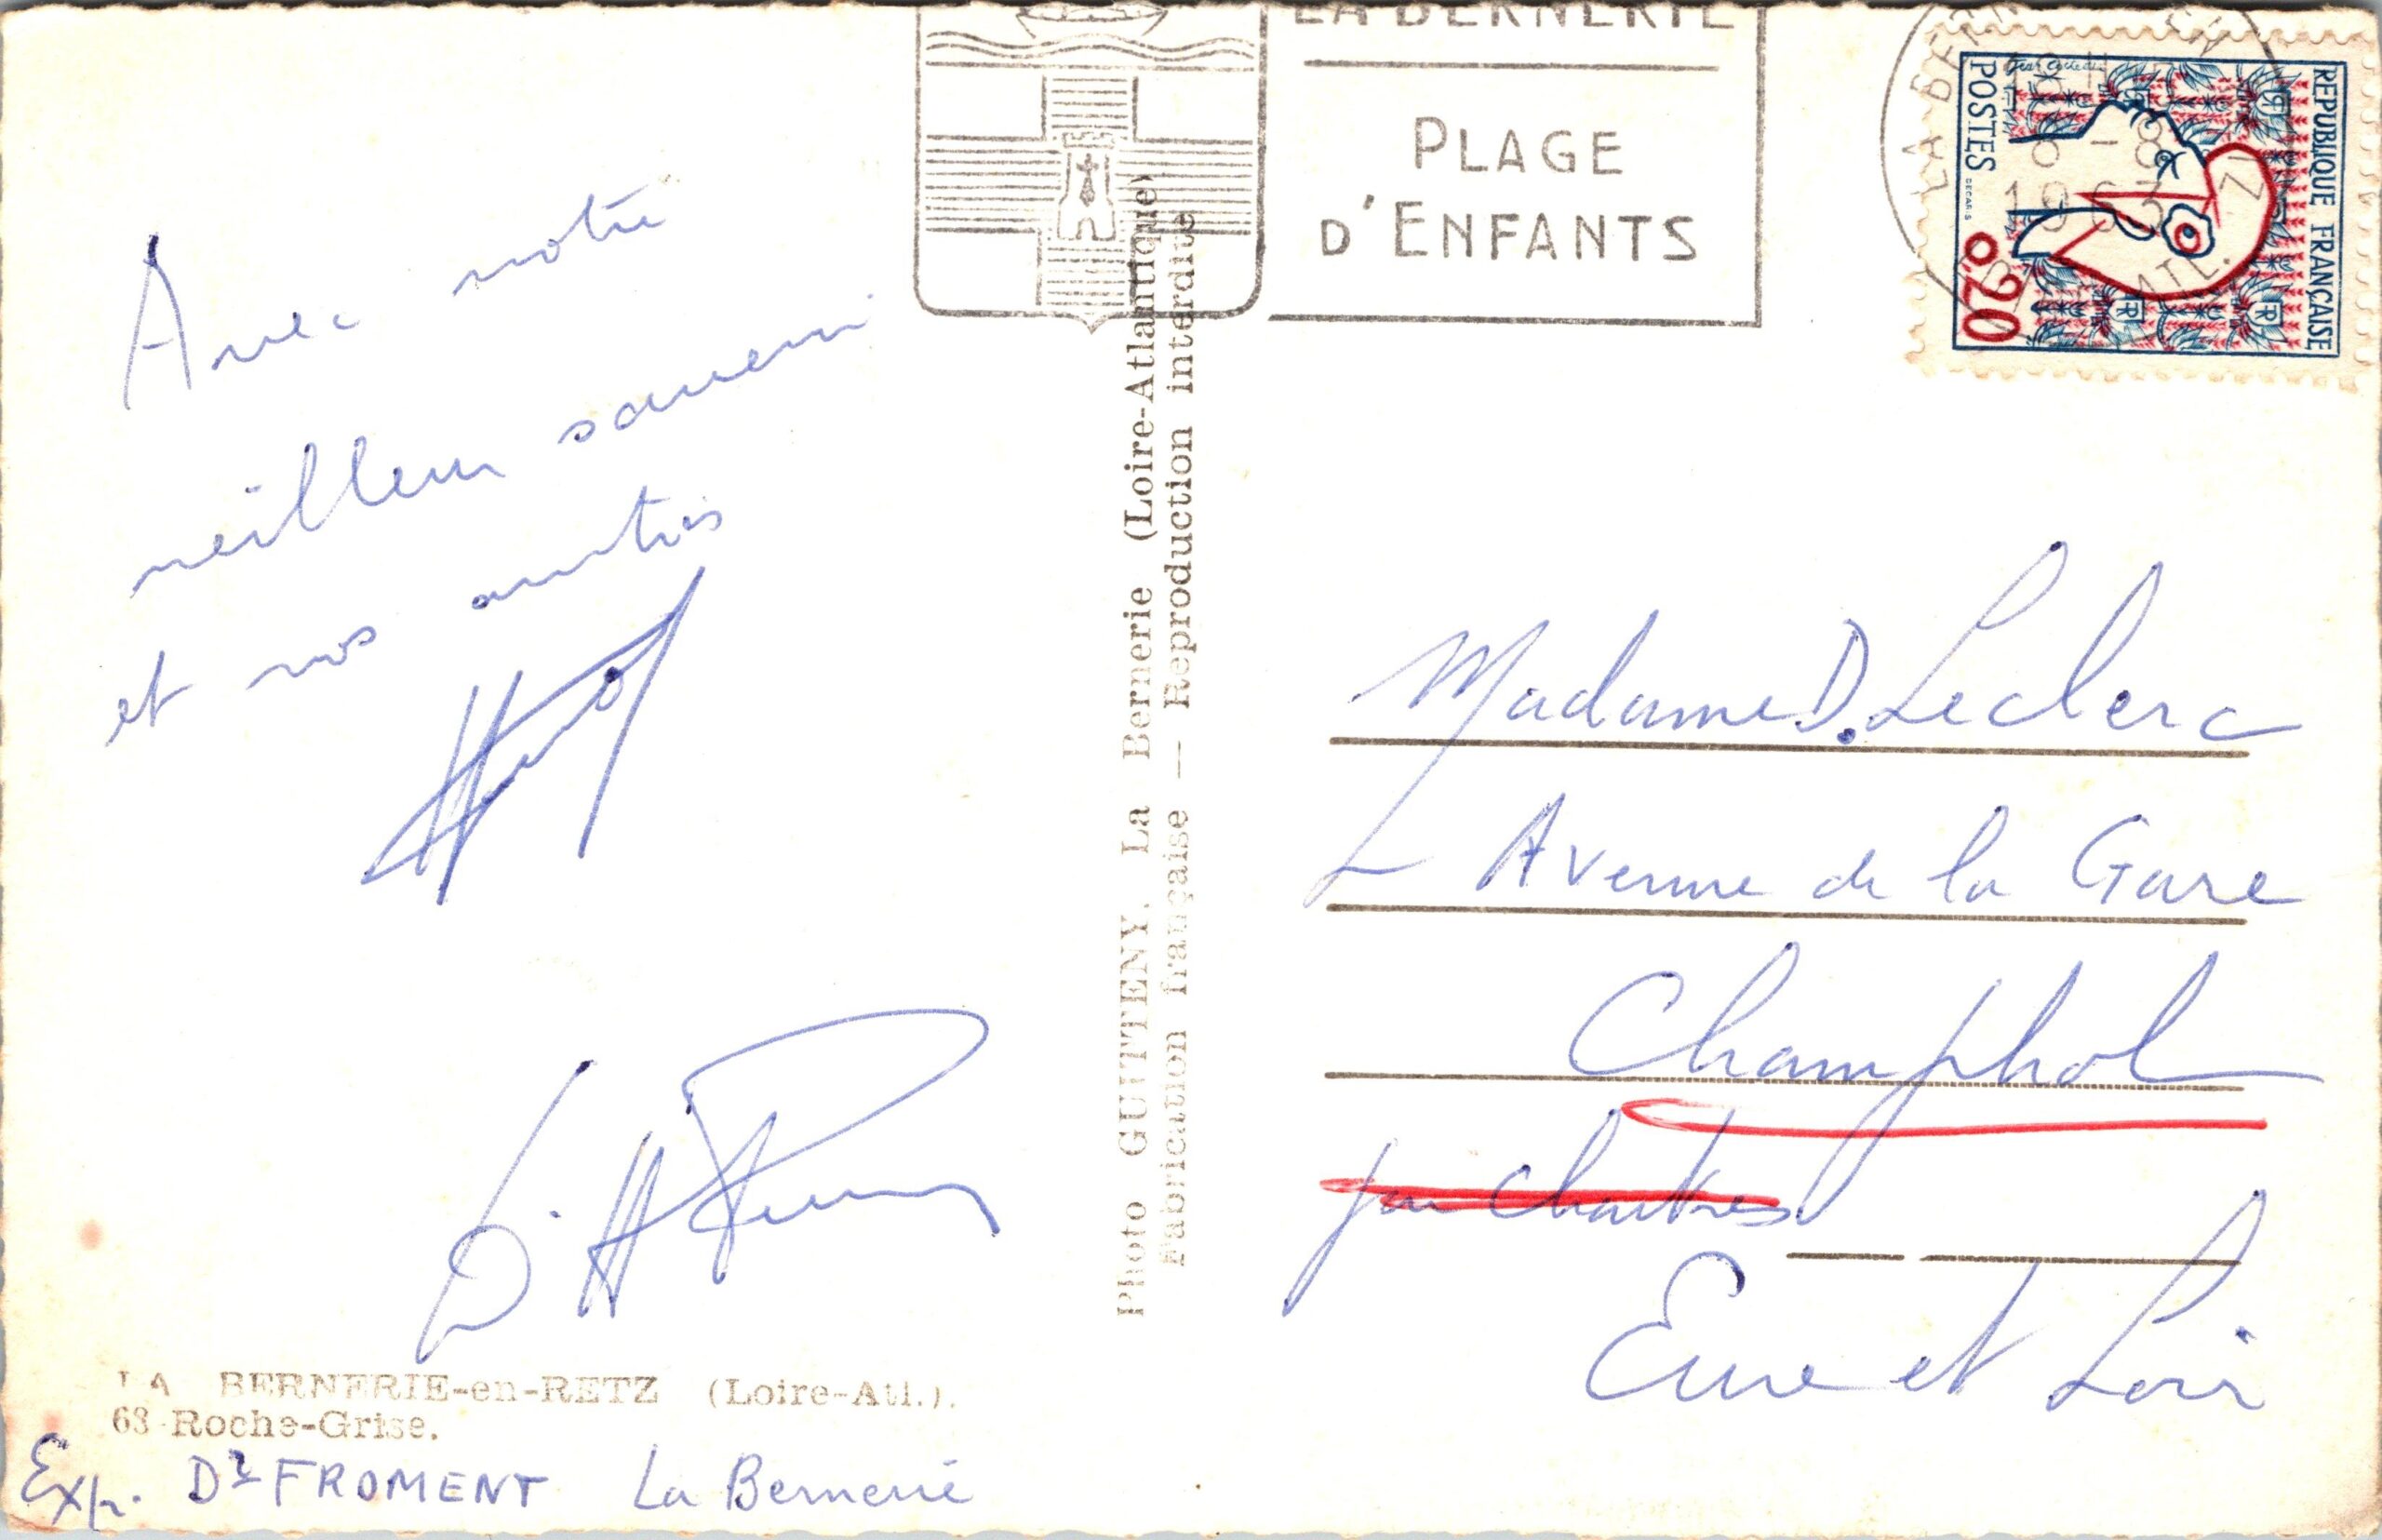 Avec notre
meilleur souvenir
et nos amitiés
LA BERNERIE-en-RETZ (Loire-Atl.).
68 Roche-Grise.
Exp. Dr FROMENT La Bernerie
Photo GUITTENY, La Bernerie (Loire-Atlantique)
Fabrication française — Reproduction interdite
LA BERNERIE
PLAGE
D'ENFANTS
8 - 8
1963
REPUBLIQUE FRANÇAISE
POSTES
0,20
Jean Cocteau
DECARIS
Madame D. Leclerc
Avenue de la Gare
Champhol
par Chartres
Eure et Loir